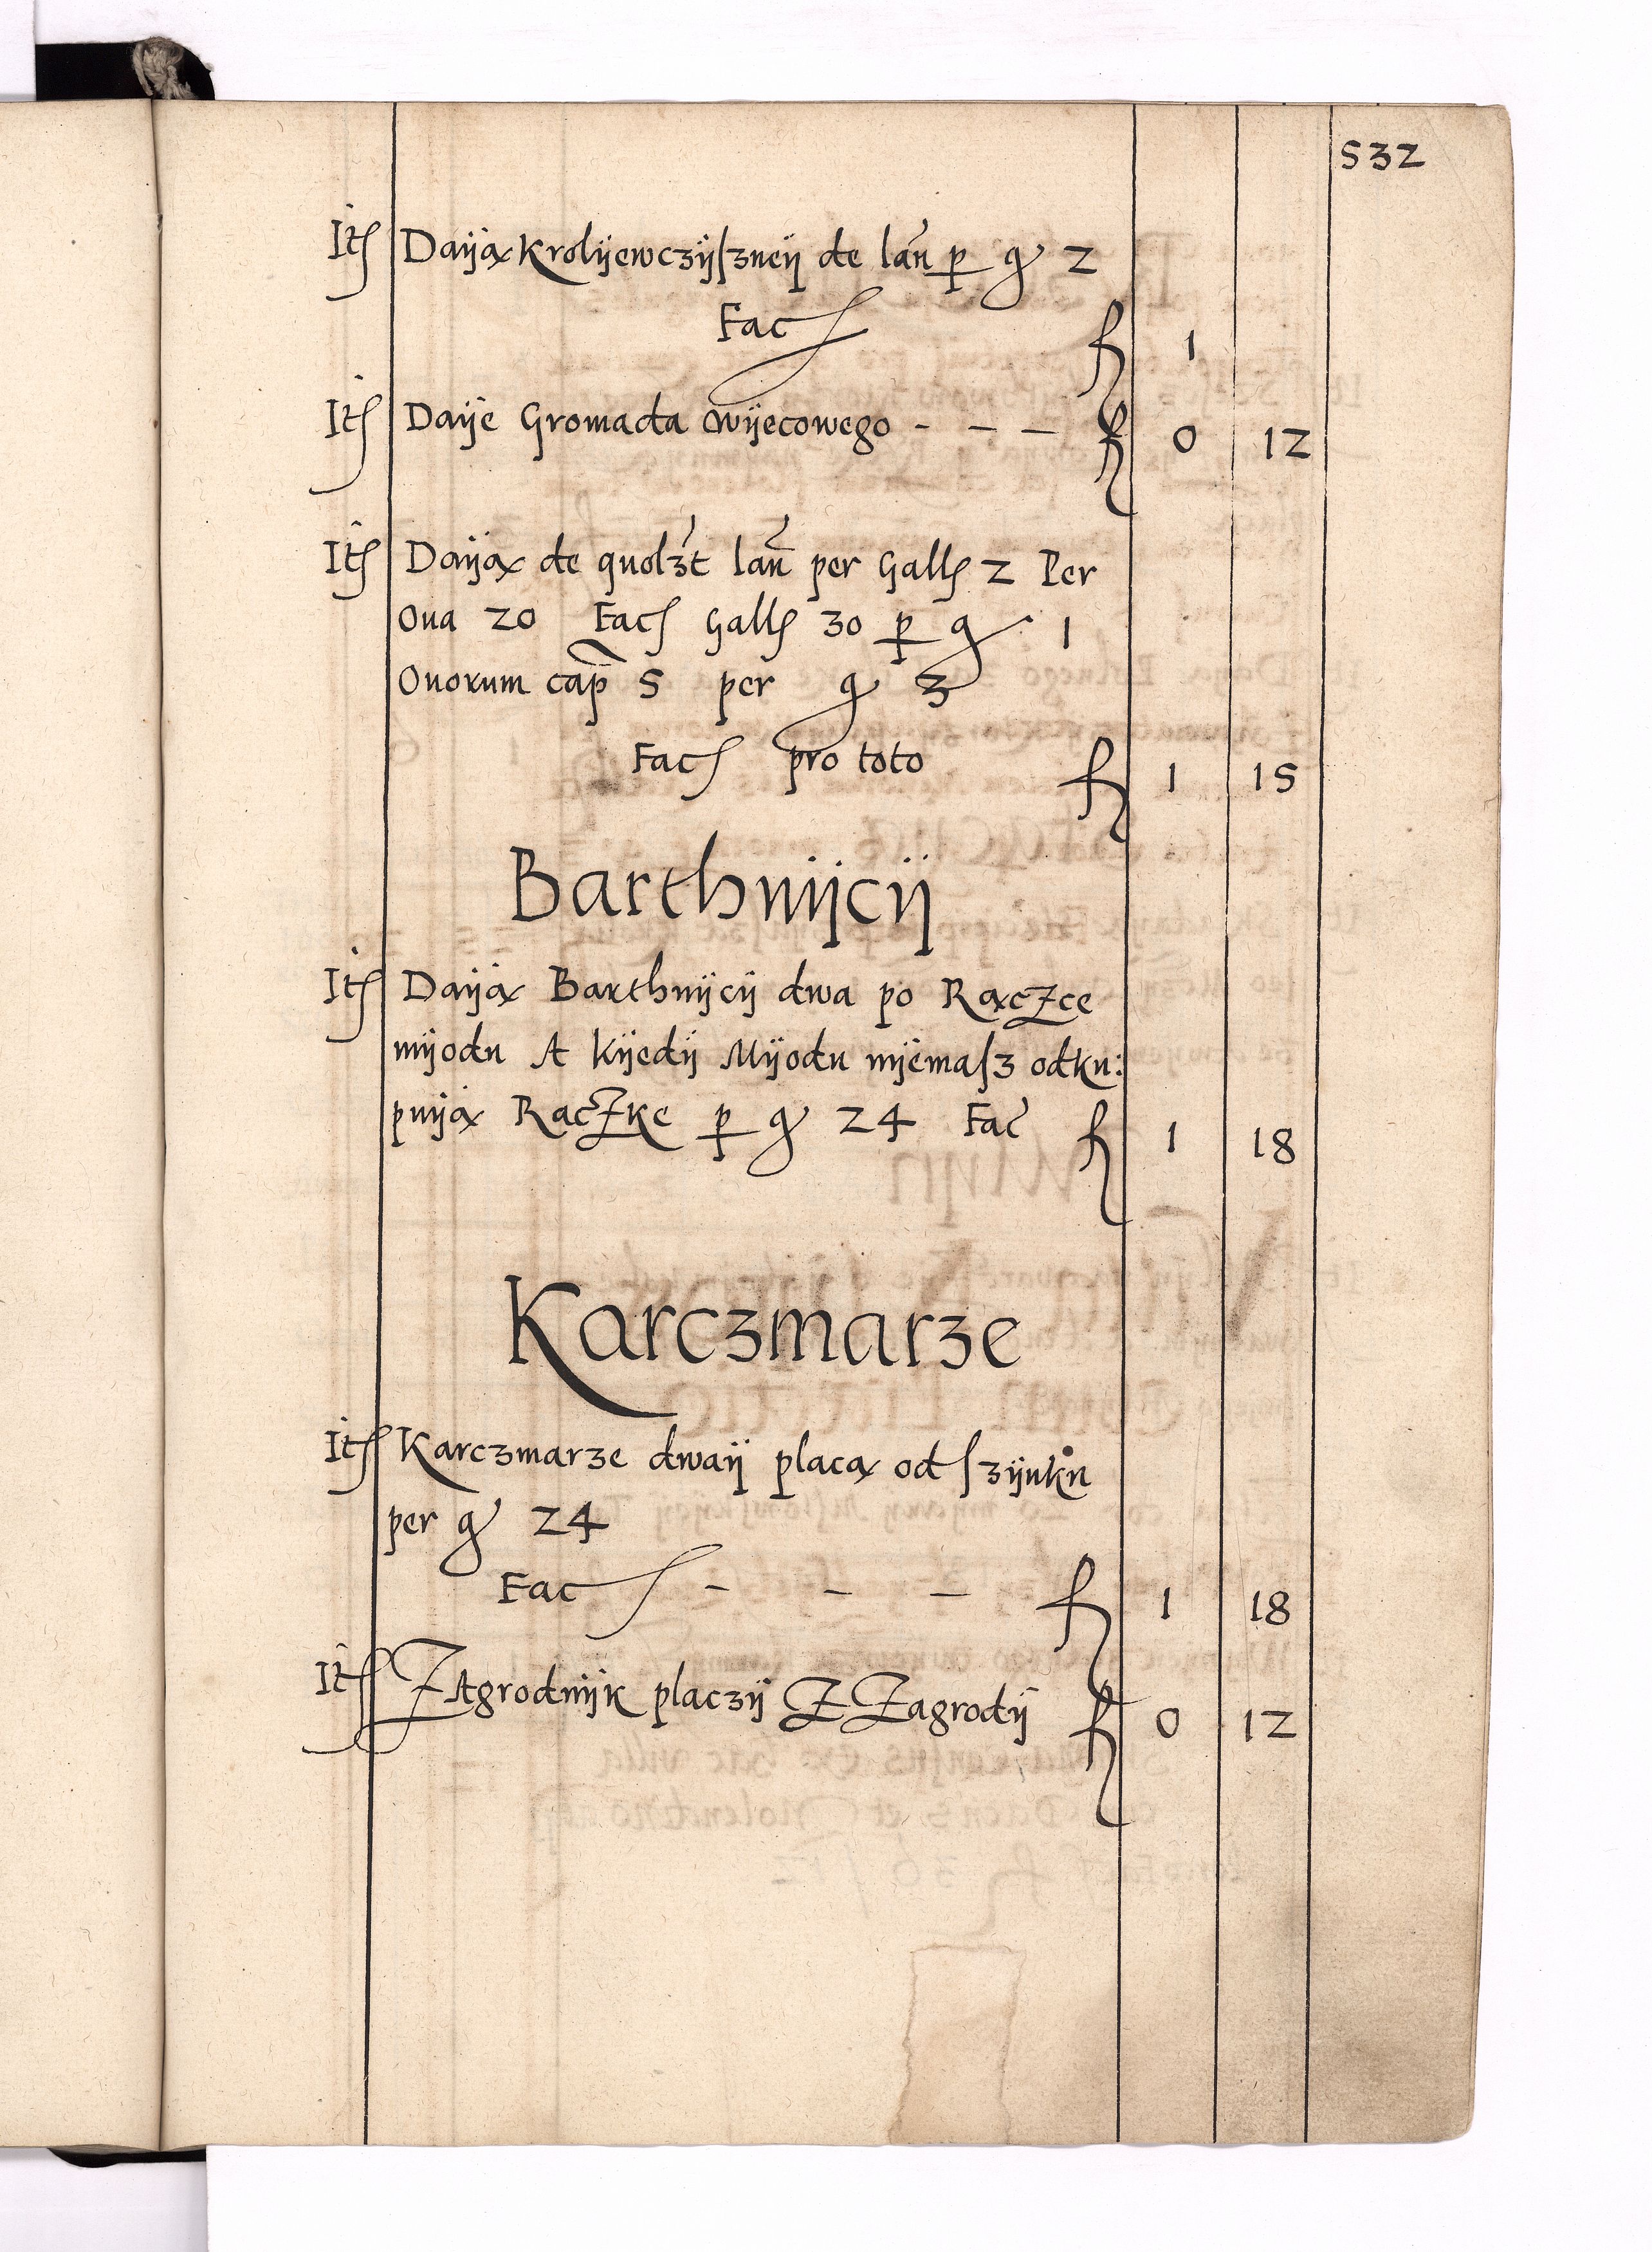 532
Itę Dayą Krolyewczyszney de lan p gr 2
Fac fl 1
Itę Daye Gromada wyecowego - - - fl 0 12
Itę Dayą de quolzt lan per Gall 2 Per
Oua 20 Fac Gall 30 p gr 1
Ouorum cap 5 per gr 3
Fac pro toto fl 1 15
Barthnijcij
Itę Dayą Barthnijcij dwa po Raczce
mÿodu A kijedij Mÿodu nijemasz odku:
puÿą Raczke p gr 24 Fac fl 1 18
Karczmarze
Itę Karczmarze dwaij placą od szÿnku
per gr 24
Fac - - - fl 1 18
Itę ZAgrodnijk placzÿ Z Zagrodÿ fl 0 12